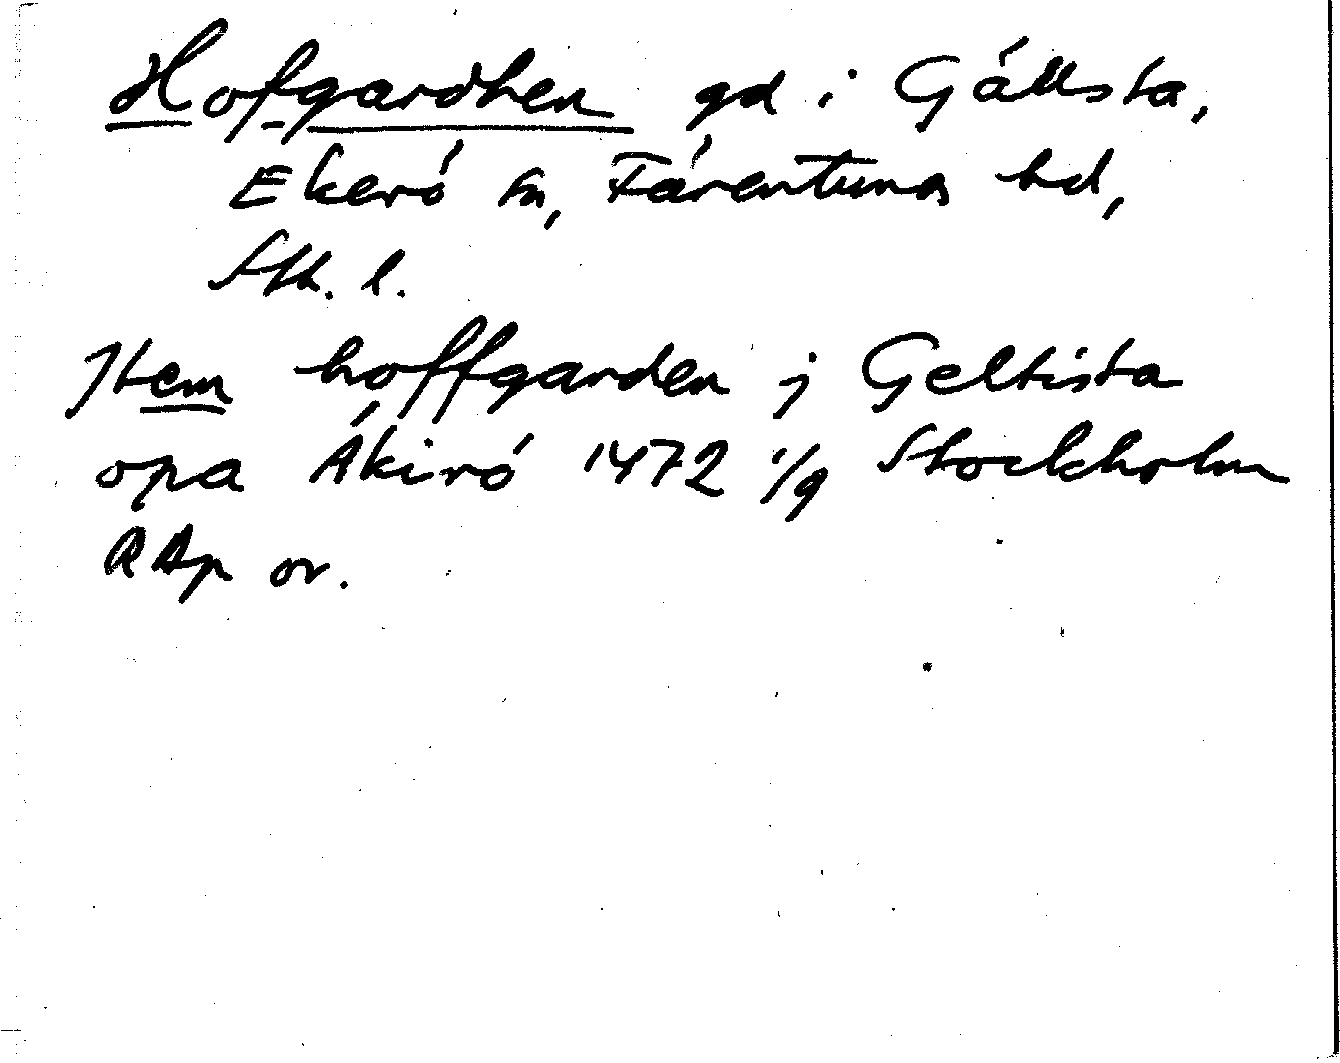 Hofgardhen gd i Gällsta,
Ekerö sn, Färentuna hd,
Sth. l.
Item hoffgarden j Geltista
opa Äkirö 1472 1/9 Stockholm
RAp or.